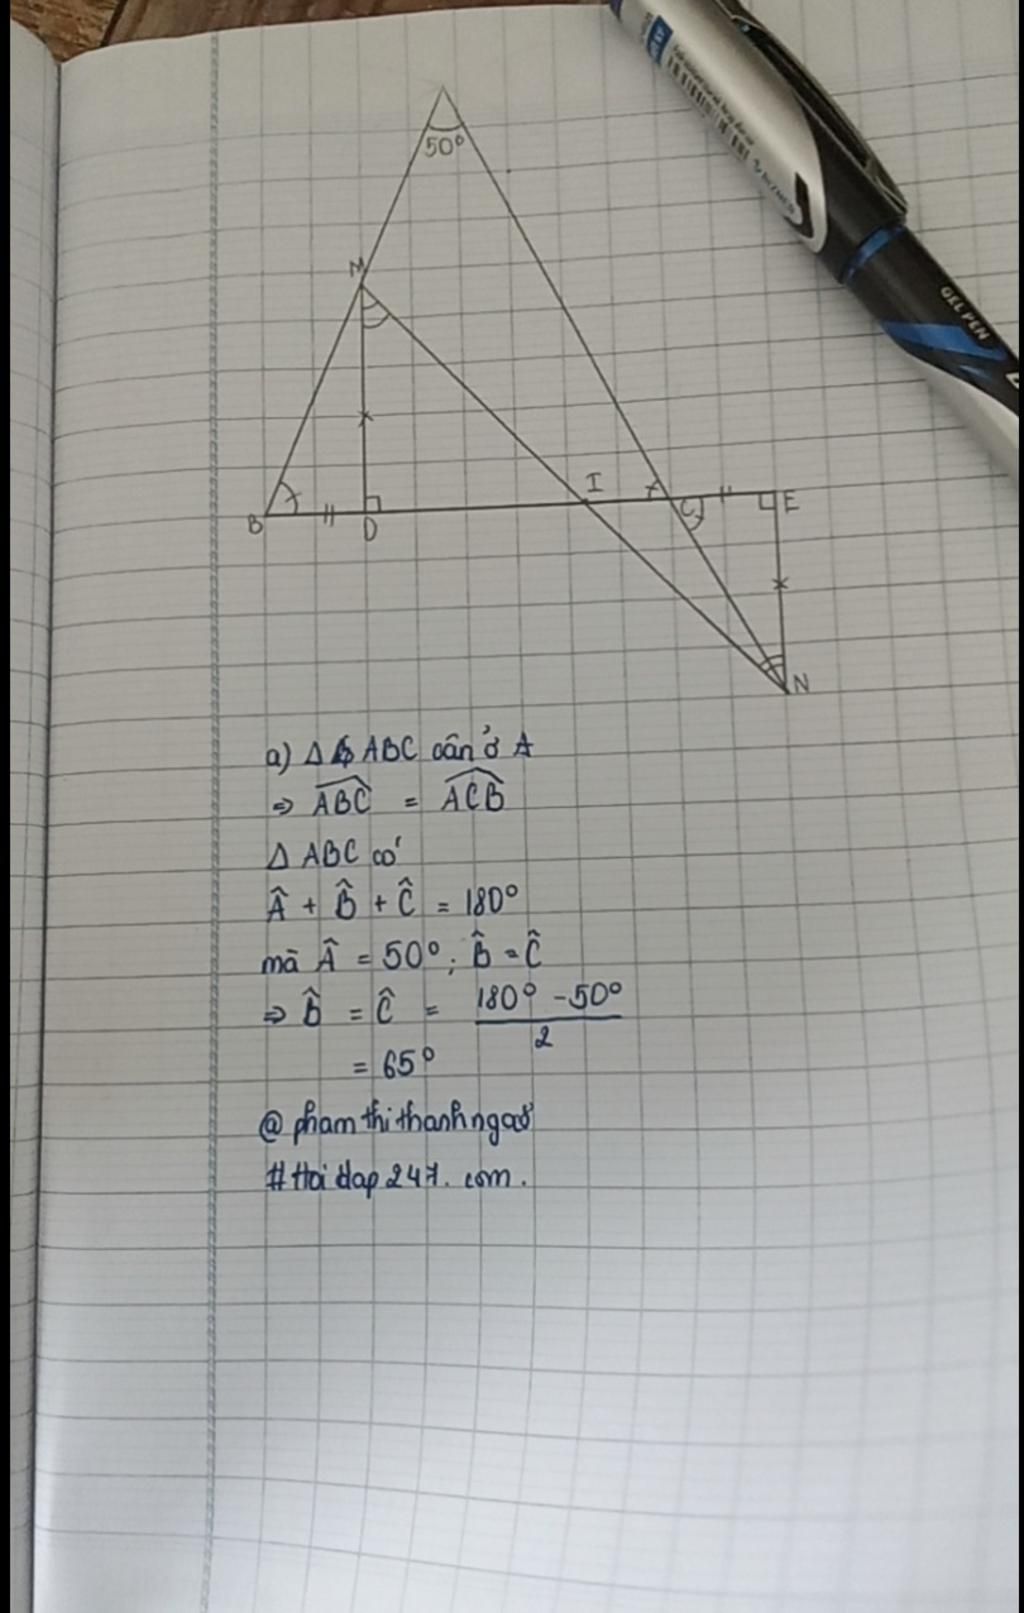 50°
M
I
B
D
C
E
N
GEL PEN
a) Δ ABC cân ở A
⇒ \widehat{ABC} = \widehat{ACB}
Δ ABC có
Â + B̂ + Ĉ = 180°
mà Â = 50°; B̂ = Ĉ
⇒ B̂ = Ĉ = \frac{180° - 50°}{2}
= 65°
@ phamthithanhnga8
# Hoi dap 247. com.